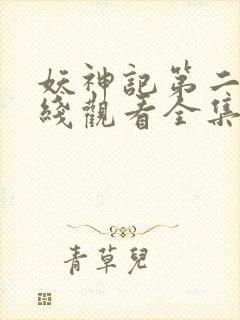 妖神記第二
綫觀看全集
青草兒